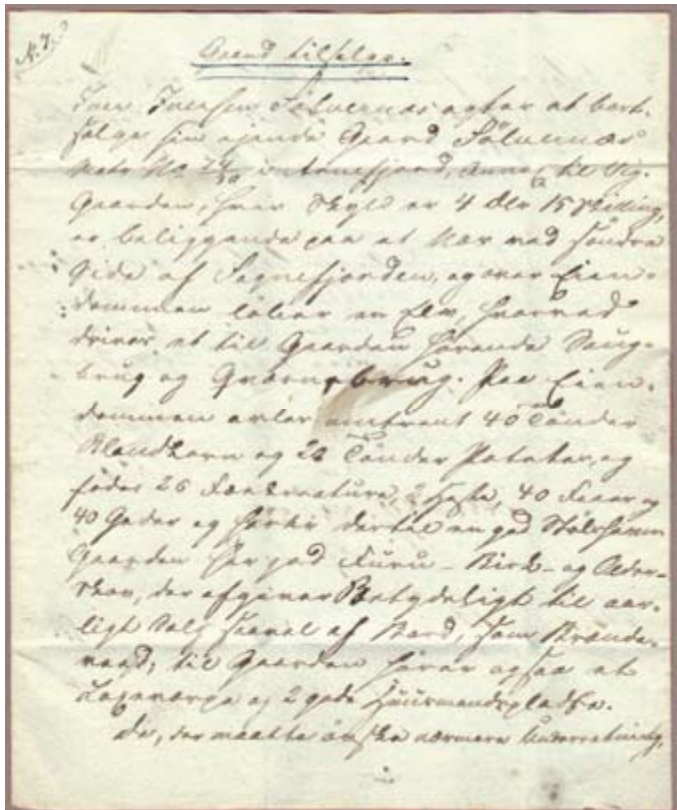 N. 7.
Gaard tilsalgs.
Iver Iversen Sølvernæs agter at bort-
sælge sin eiende Gaard Sølvernæs
Matr No 74, i Arnefjord, Annex til Vig.
Gaarden, hvis Skyld er 4 Dlr 15 Skilling,
er beliggende paa et Næs ved søndre
Side af Sognefjorden, og over Eien-
dommen løber en Elv, hvorved
drives et til Gaarden hørende Saug-
brug og Qværnebrug. Paa Eien-
dommen avles omtrent 40 Tønder
Blandkorn og 20 Tønder Poteter, og
fødes 26 Storkreature, 2 Heste, 40 Faar og
40 Geder og hører dertil en god
Gaarden har god Furu- Birk- og Older-
skov, der afgiver Betydeligt til aar-
ligt Salg saavel af Baand, som Brænde-
veed; til Gaarden hører ogsaa et
Laxevarpe og 2 gode Huusmandspladse.
De, der maatte ønske nærmere Underretning,